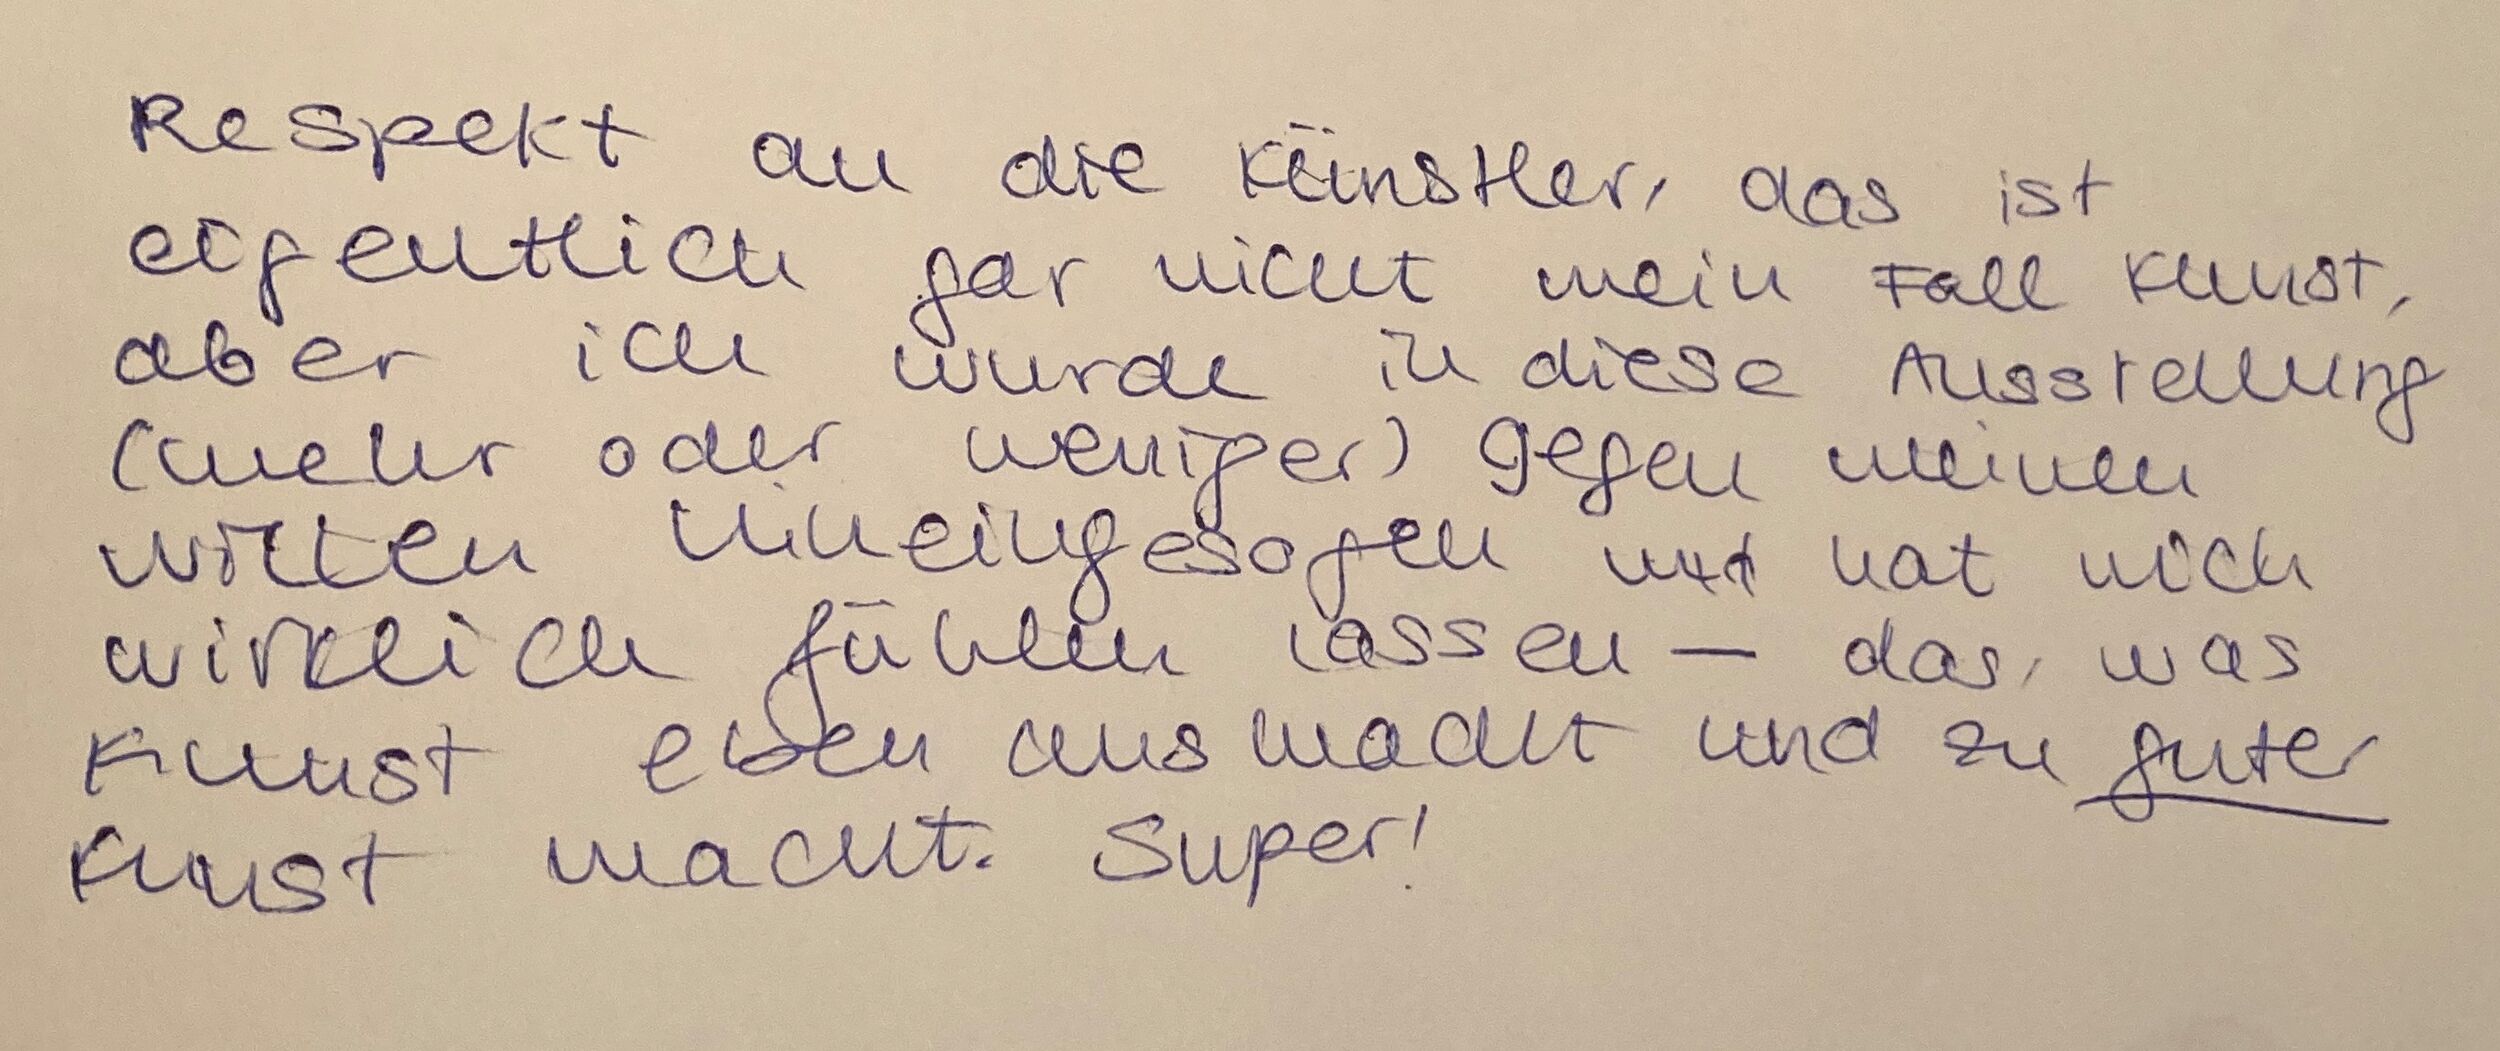 Respekt an die Künstler, das ist
eigentlich gar nicht mein Fall Kunst,
aber ich wurde in diese Ausstellung
(mehr oder weniger) gegen meinen
Willen hineingesogen und hat mich
wirklich fühlen lassen — das, was
Kunst eben ausmacht und zu guter
Kunst macht. Super!